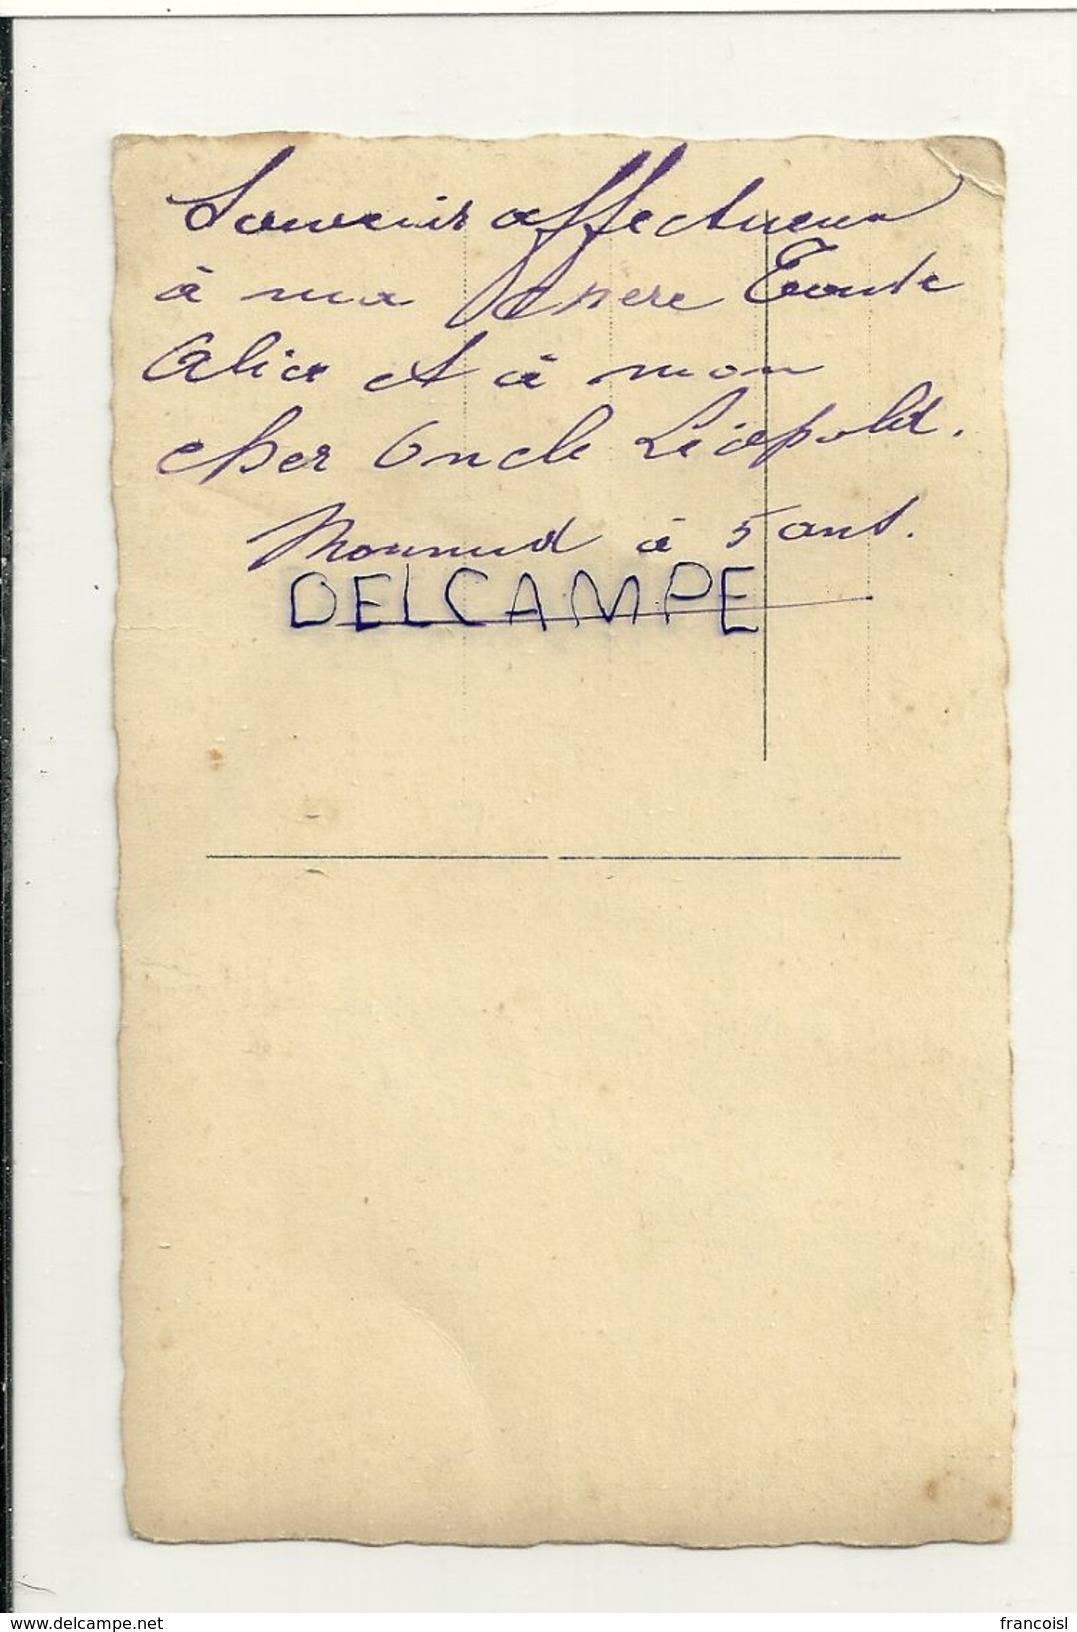 Souvenir affectueux
à ma chère Tante
Alice et à mon
cher Oncle Léopold.
à 5 ans.
DELCAMPE
www.delcampe.net
francoisl